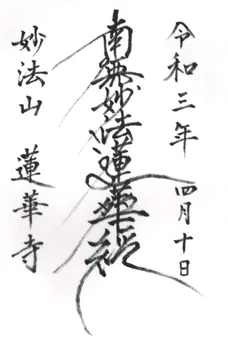 令和三年　四月十日
南無妙法蓮華経
妙法山　蓮華寺